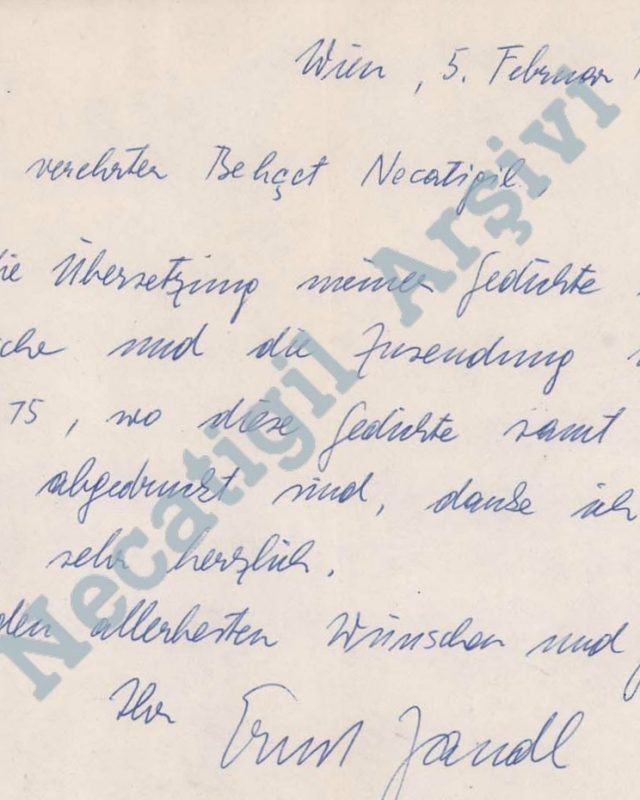 Wien, 5. Februar 1
verehrter Behçet Necatigil,
ie Übersetzung meiner Gedichte
che und die Zusendung
75, wo diese Gedichte samt
abgedruckt sind, danke ich
sehr herzlich.
den allerbesten Wünschen und
Ihr Ernst Jandl
Necatigil Arşivi